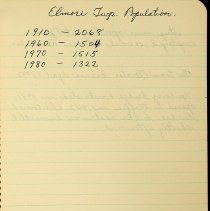 Elmore Twp. Population.
1910 - 2068
1960 - 1504
1970 - 1515
1980 - 1322